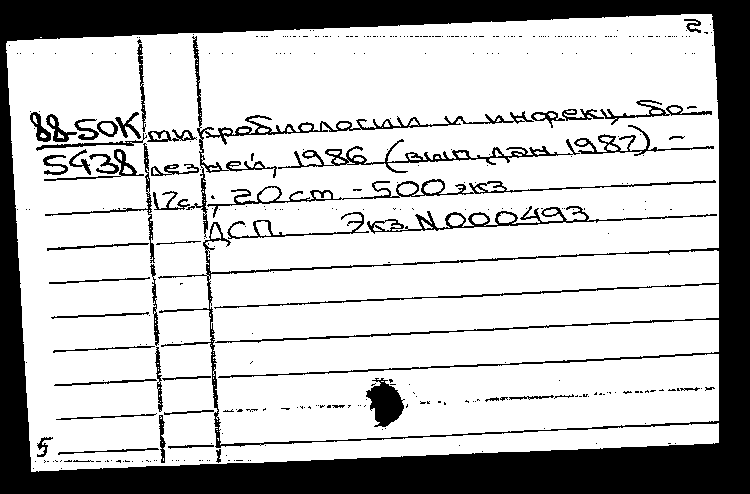 2.
88-50К микробиологии и инфекц. бо-
5438 лезней, 1986 (вып. дан. 1987). -
17с.; 20 cm - 500 экз
ДСП. Экз. N 000493.
5